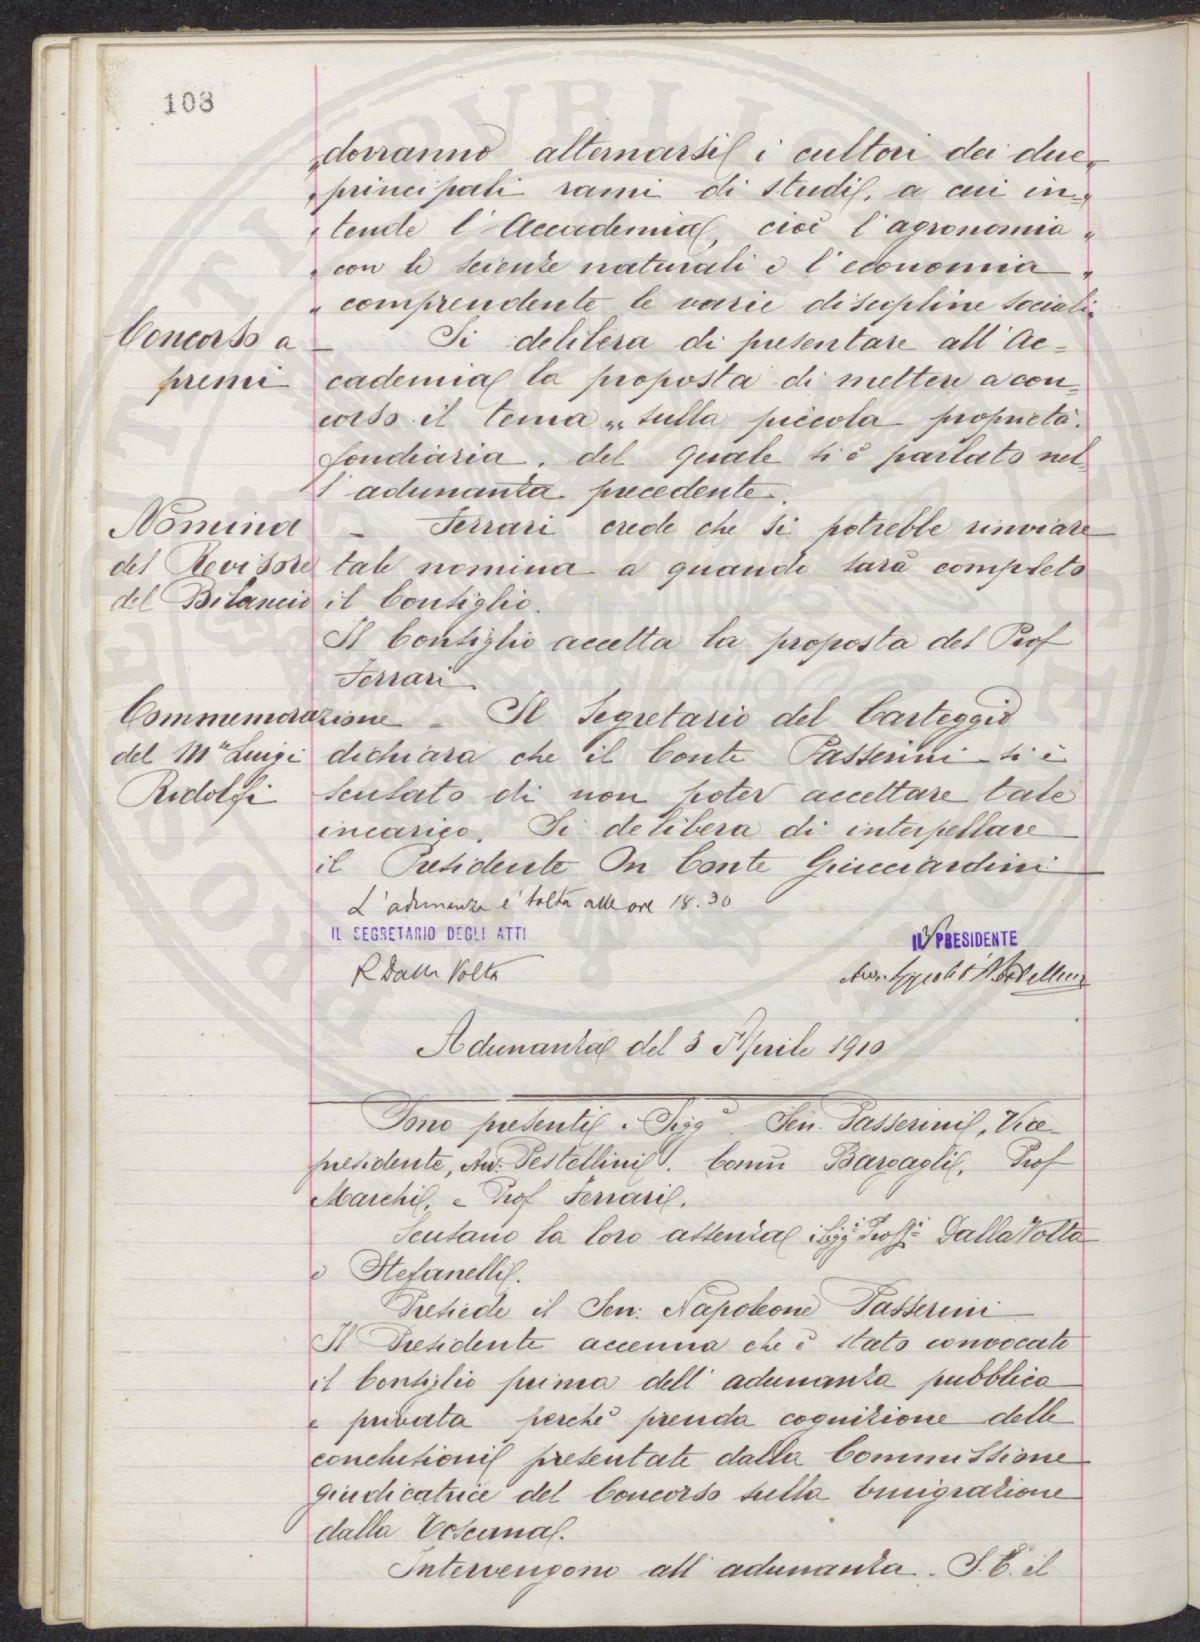 108
„dovranno alternarsi i cultori dei due„
„principali rami di studi, a cui in=„
„tende l'Accademia, cioè l'agronomia„
„con le scienze naturali e l'economia„
„comprendente le varie discipline sociali„
Concorso a premi
— Si delibera di presentare all'Ac=
cademia la proposta di mettere a con=
corso il tema „sulla piccola proprietà
fondiaria, del quale si è parlato nel
l'adunanza precedente.
Nomina del Revisore del Bilancio
— Ferrari crede che si potrebbe rinviare
tale nomina a quando sarà completo
il Consiglio.
Il Consiglio accetta la proposta del Prof
Ferrari
Commemorazione del Mse Luigi Ridolfi
— Il Segretario del Carteggio
dichiara che il Conte Passerini si è
scusato di non poter accettare tale
incarico. Si delibera di interpellare
il Presidente On Conte Guicciardini
L'adunanza è tolta alle ore 18.30
IL SEGRETARIO DEGLI ATTI
IL PRESIDENTE
R Dalla Volta
Avv. Ippolito Pestellini
Adunanza del 3 Aprile 1910
Sono presenti i Sigg.i Sen. Passerini, Vice-
presidente, Avv. Pestellini, Comm Bargagli, Prof
Marchi, e Prof Ferrari.
Scusano la loro assenza i Sigg.i Proff.i Dalla Volta
e Stefanelli.
Presiede il Sen. Napoleone Passerini
Il Presidente accenna che è stato convocato
il Consiglio prima dell'adunanza pubblica
e privata perchè prenda cognizione delle
conclusioni presentate dalla Commissione
giudicatrice del Concorso sulla Emigrazione
dalla Toscana.
Intervengono all'adunanza S. E. il